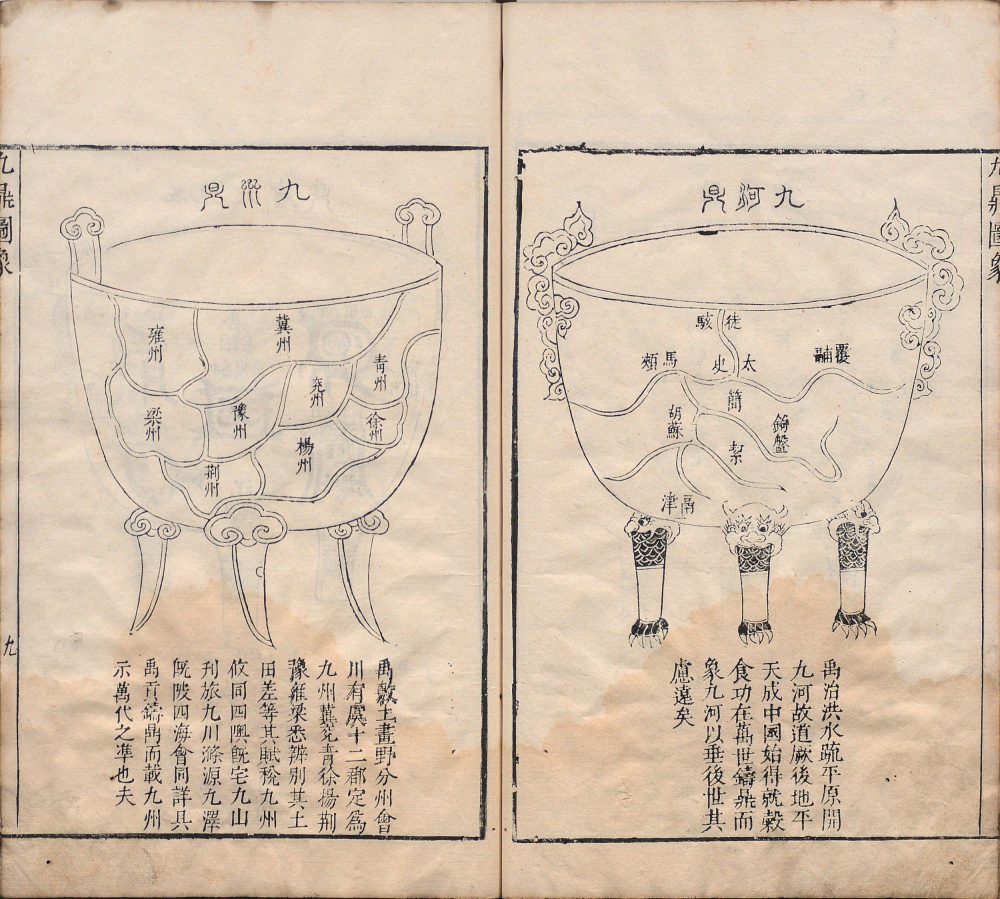 九鼎圖象
九河鼎
徒駭
太史
馬頰
覆鬴
簡
胡蘇
絜
鉤盤
鬲津
禹治洪水疏平原開
九河故道厥後地平
天成中國始得就穀
食功在萬世鑄鼎而
象九河以垂後世其
慮遠矣
九州鼎
冀州
雍州
青州
兗州
徐州
豫州
梁州
楊州
荆州
禹敷土畫野分州會
川有虞十二郡定為
九州冀兗青徐揚荆
豫雍梁悉辨別其土
田差等其賦稅九州
攸同四隩旣宅九山
刊旅九川滌源九澤
旣陂四海會同詳具
禹貢鑄鼎而載九州
示萬代之凖也夫
九鼎圖象
九